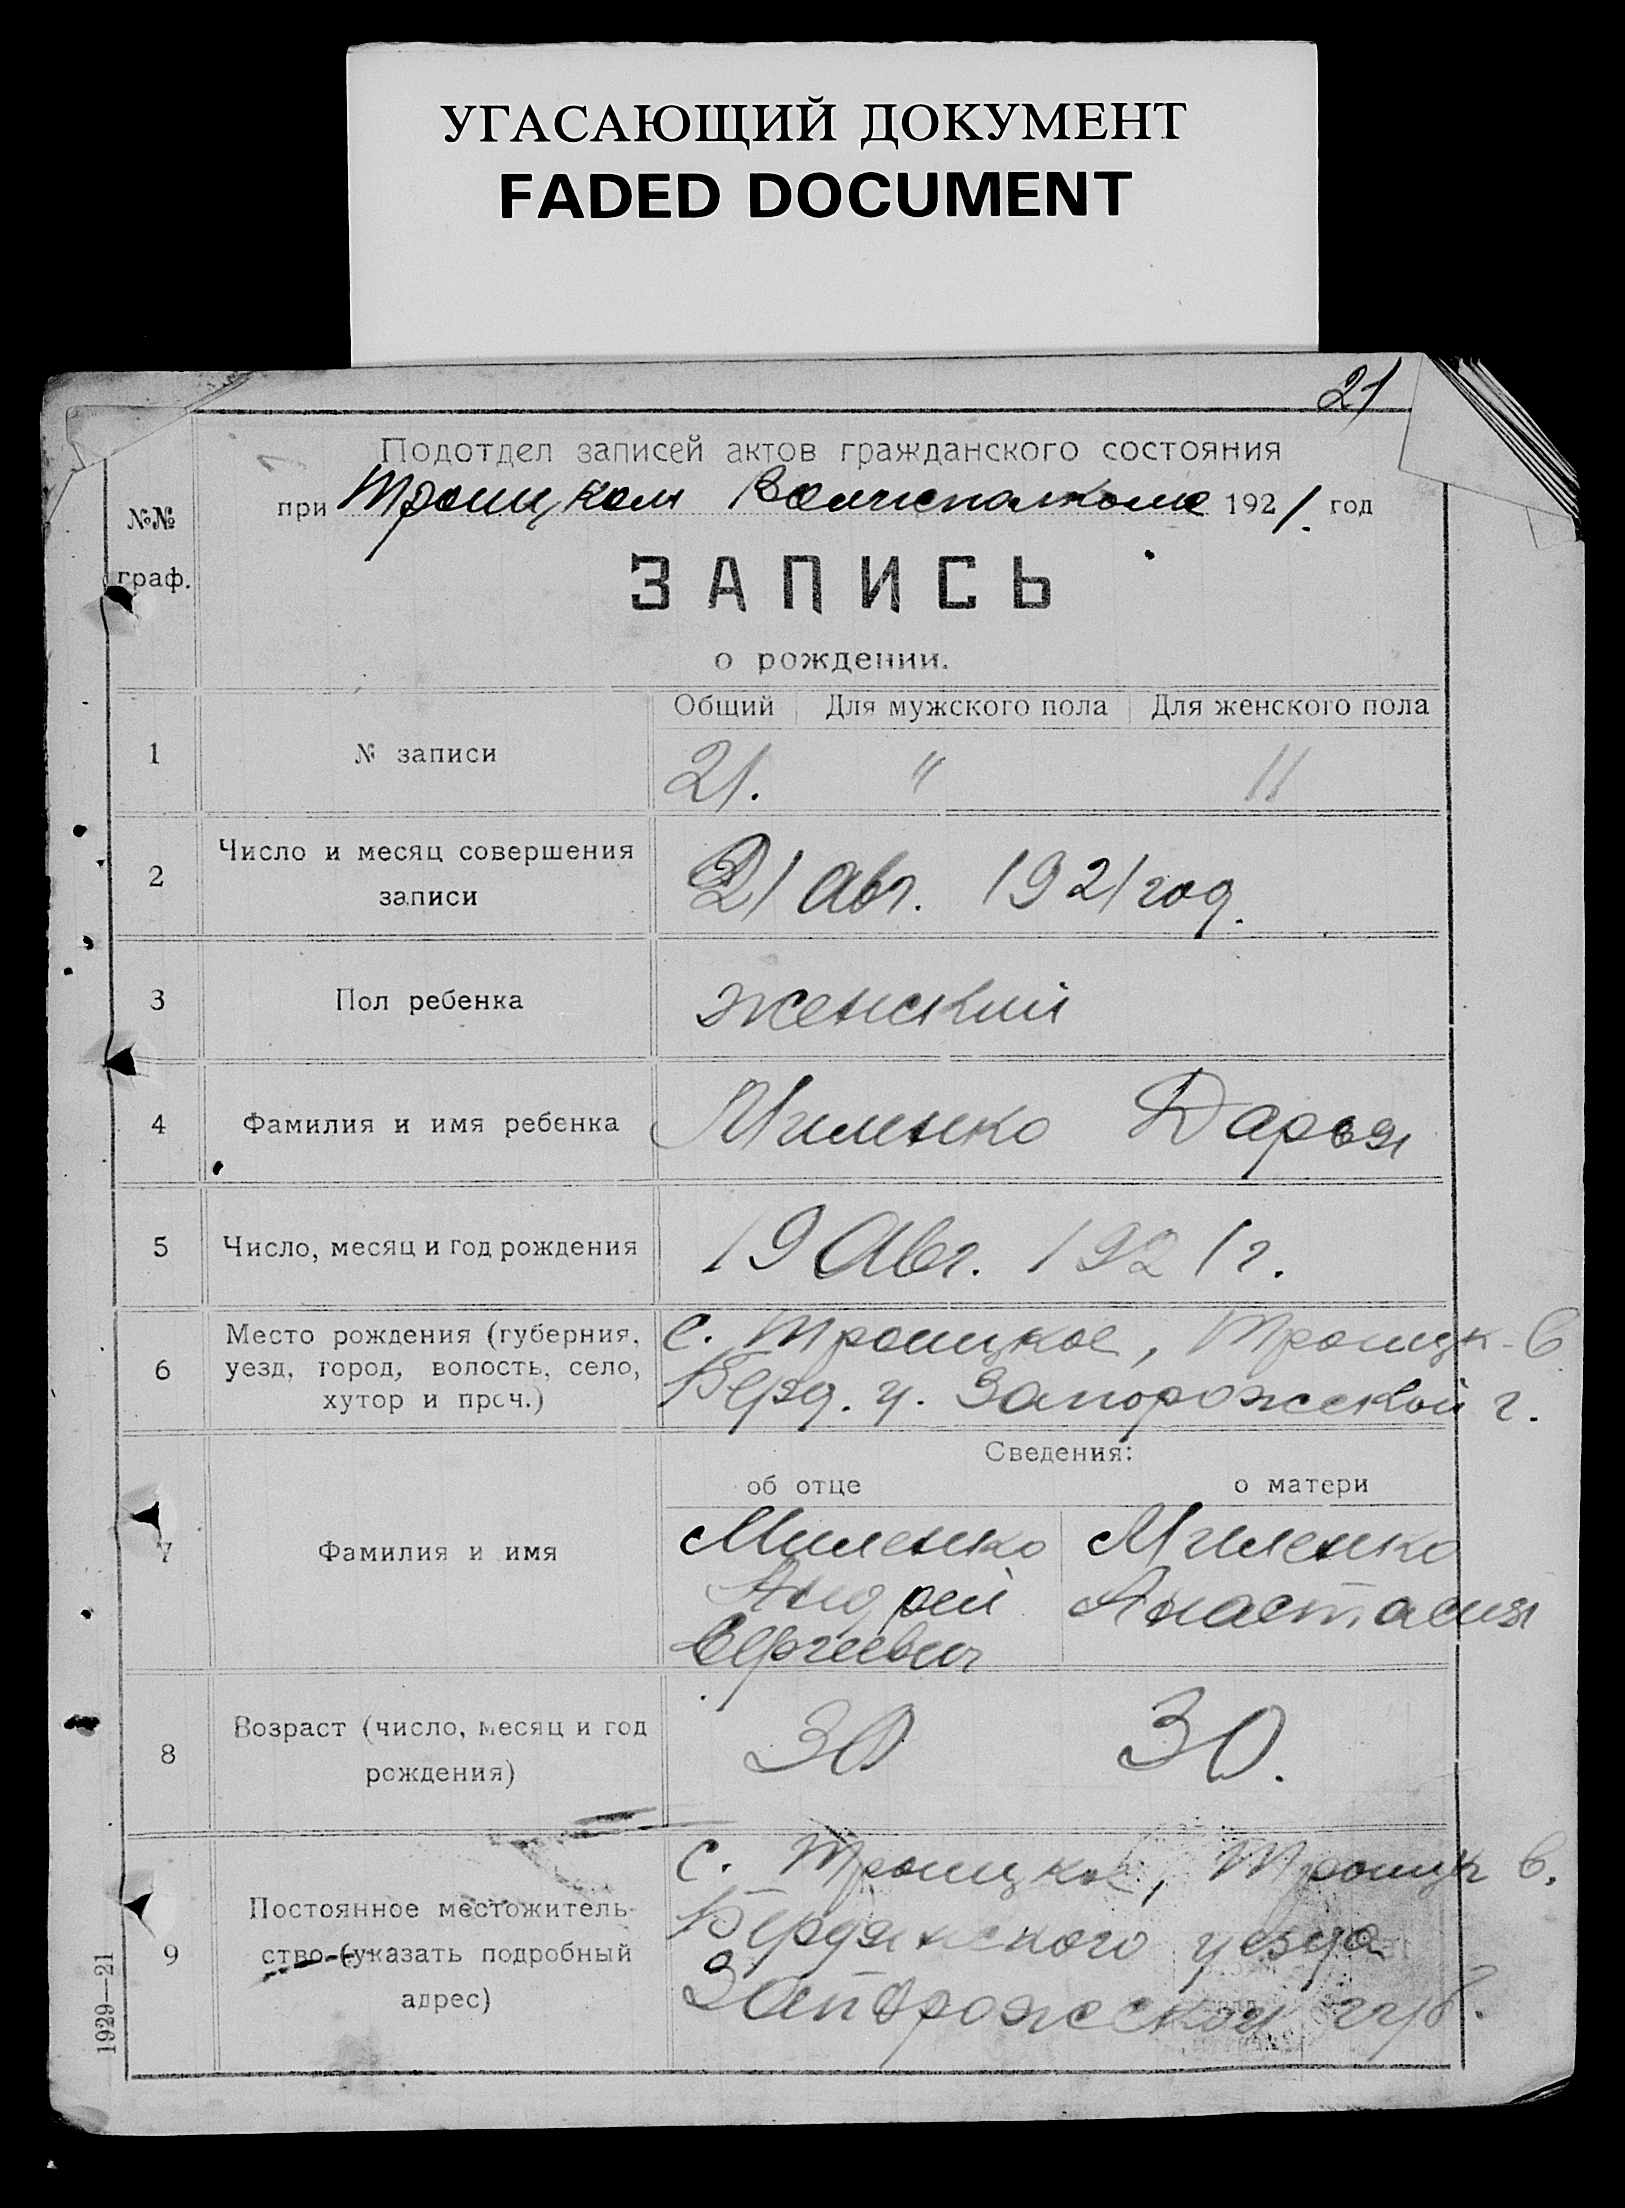 УГАСАЮЩИЙ ДОКУМЕНТ
FADED DOCUMENT
21
Подотдел записей актов гражданского состояния
при Троицком Волисполкоме 1921. год
№№
граф.
ЗАПИСЬ
о рождении.
Общий Для мужского пола Для женского пола
1 № записи 21. " "
2 Число и месяц совершения
записи
21 Авг. 1921 год.
3 Пол ребенка женский
4 Фамилия и имя ребенка Миленко Дарья
5 Число, месяц и год рождения 19 Авг. 1921 г.
6 Место рождения (губерния,
уезд, город, волость, село,
хутор и проч.)
с. Троицкое, Троицк. в
Берд. у. Запорожской г.
Сведения:
об отце о матери
7 Фамилия и имя
Миленко
Андрей
Сергеевич
Миленко
Анастасия
8 Возраст (число, месяц и год
рождения)
30 30.
9 Постоянное местожитель-
ство (указать подробный
адрес)
с. Троицкое, Троицк в.
Бердянского уезда
Запорожской губ.
1929—21